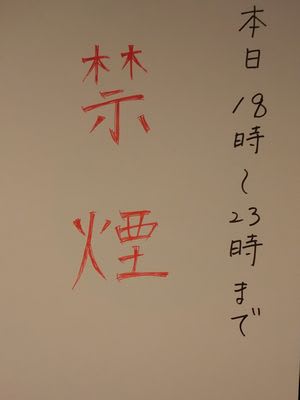 本日 18時〜23時まで
禁煙